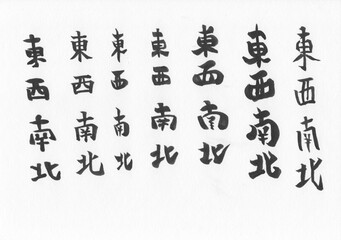 東西南北
東西南北
東西南北
東西南北
東西南北
東西南北
東西南北